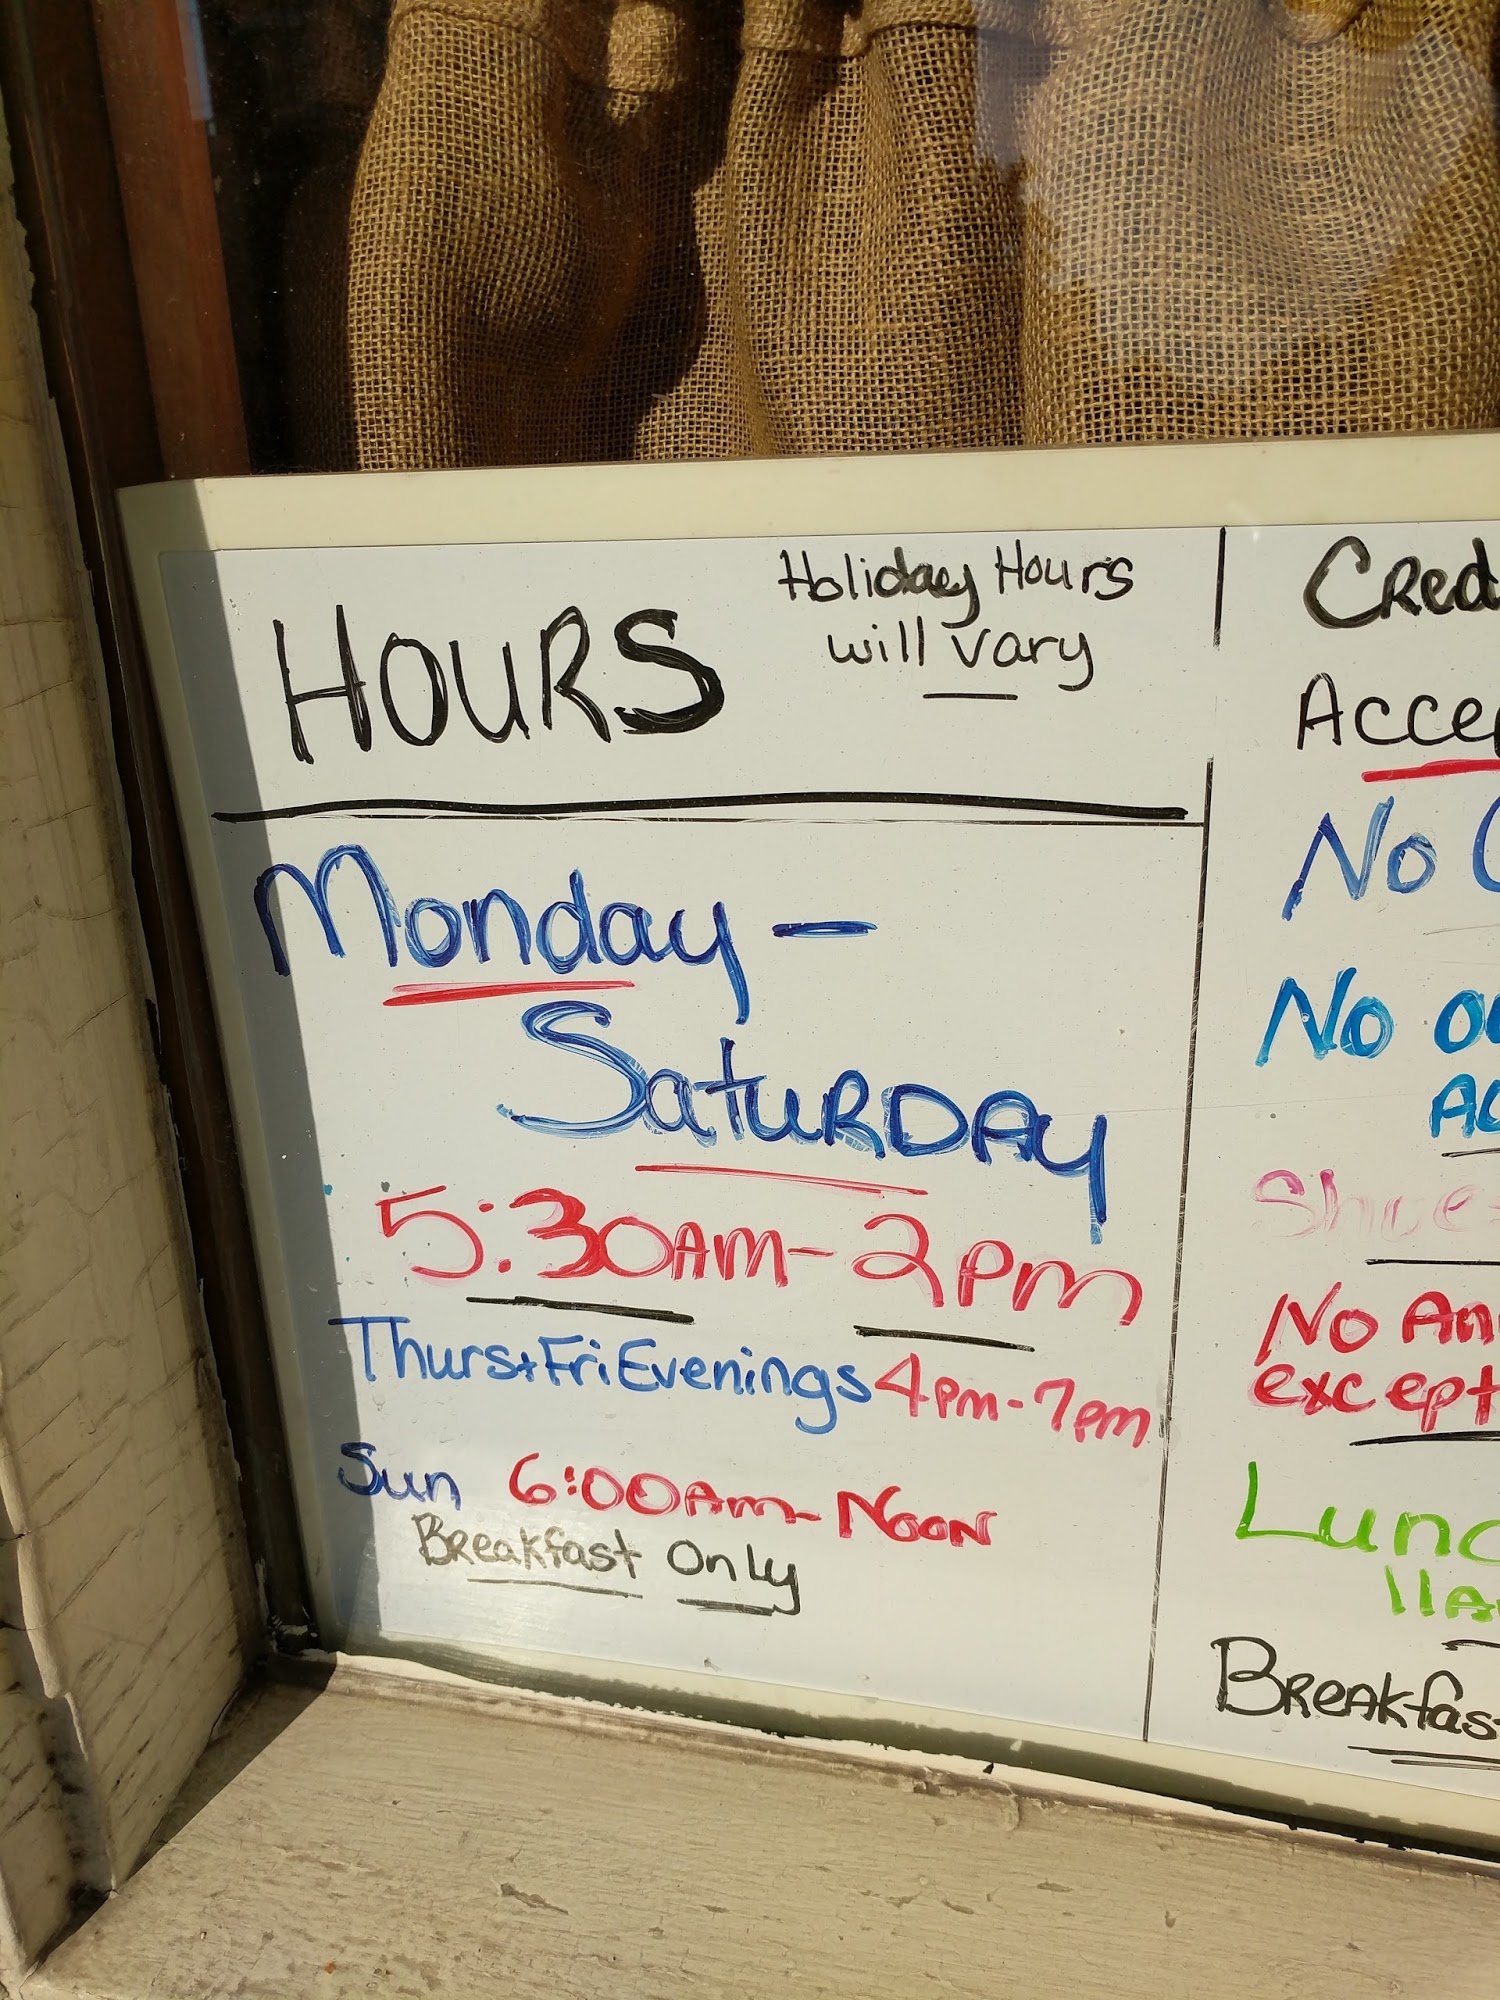 HOURS
Holiday Hours
will vary
Monday -
SATURDAY
5:30AM - 2PM
Thurs + Fri Evenings 4pm - 7pm
Sun 6:00AM - NOON
Breakfast Only
Cred
Accep
No
No ou
Ac
No An
except
Lunc
11A
BREAKfast